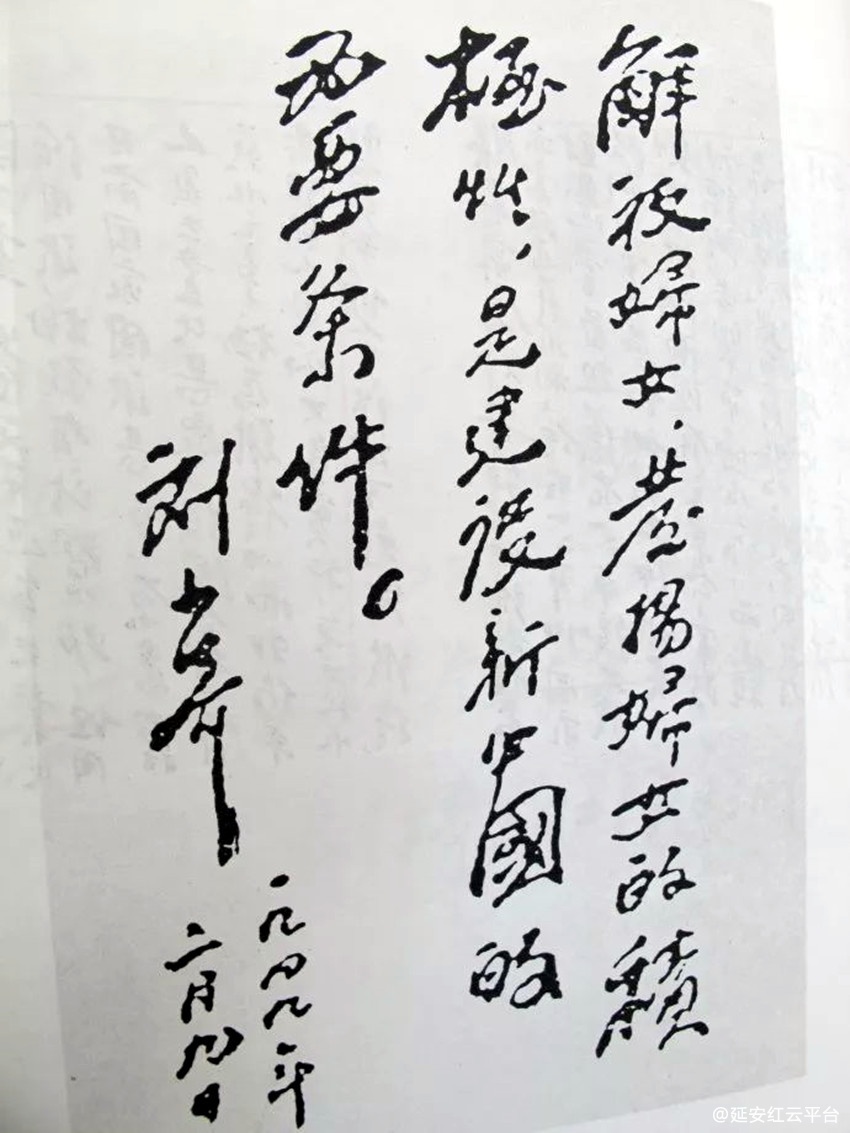 解放婦女,發揚婦女的積
極性,是建設新中國的
必要条件。
刘少奇
一九四九年
二月九日
@延安红云平台